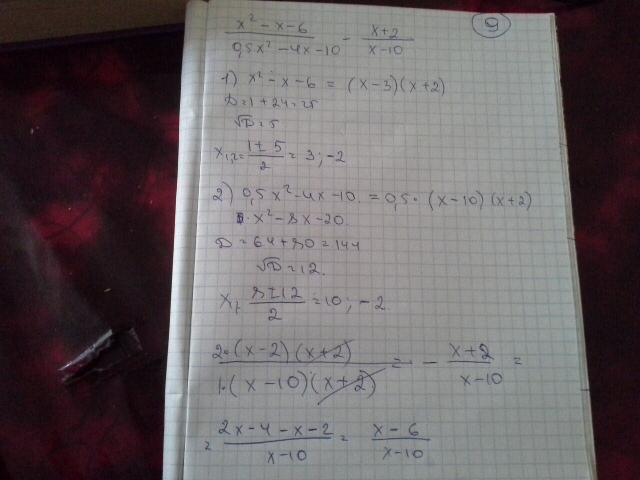 9
(x² - x - 6)/(0,5x² - 4x - 10) - (x+2)/(x-10)
1) x² - x - 6 = (x-3)(x+2)
D = 1 + 24 = 25
√D = 5
x₁,₂ = (1 ± 5)/2 = 3; -2
2) 0,5x² - 4x - 10. = 0,5 · (x-10)(x+2)
x² - 8x - 20.
D = 64 + 80 = 144
√D = 12.
x₁, (8 ± 12)/2 = 10; -2
2·(x-2)(x+2)/1·(x-10)(x+2) = - (x+2)/(x-10) =
= (2x - 4 - x - 2)/(x-10) = (x-6)/(x-10)